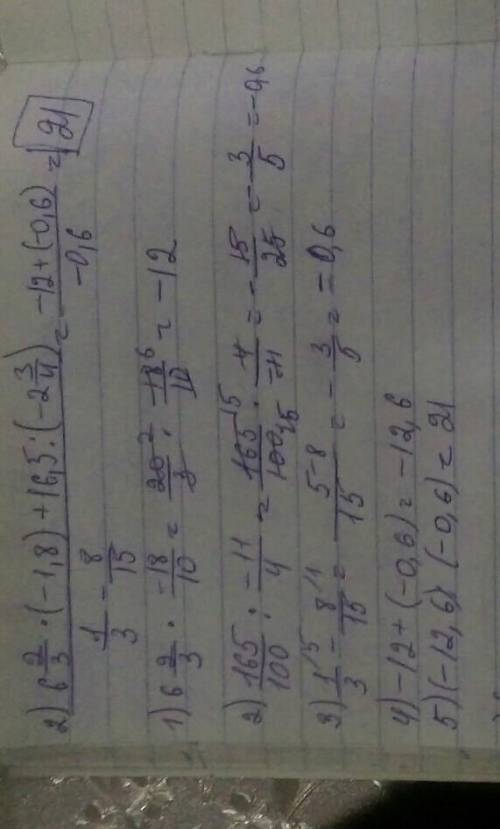 2) 6 2/3 · (-1,8) + 16,5 : (-2 3/4) = -12 + (-0,6) = 21
1/3 - 8/15   -0,6
1) 6 2/3 · -18/10 = 20 2/3 · -18 6/10 = -12
2) 165/100 : -11/4 = 165 15/100 25 · 4/-11 = - 15/25 = - 3/5 = -0,6
3) 1 5/3 - 8 1/15 = 5-8/15 = - 3/5 = -0,6
4) -12 + (-0,6) = -12,6
5) (-12,6) : (-0,6) = 21